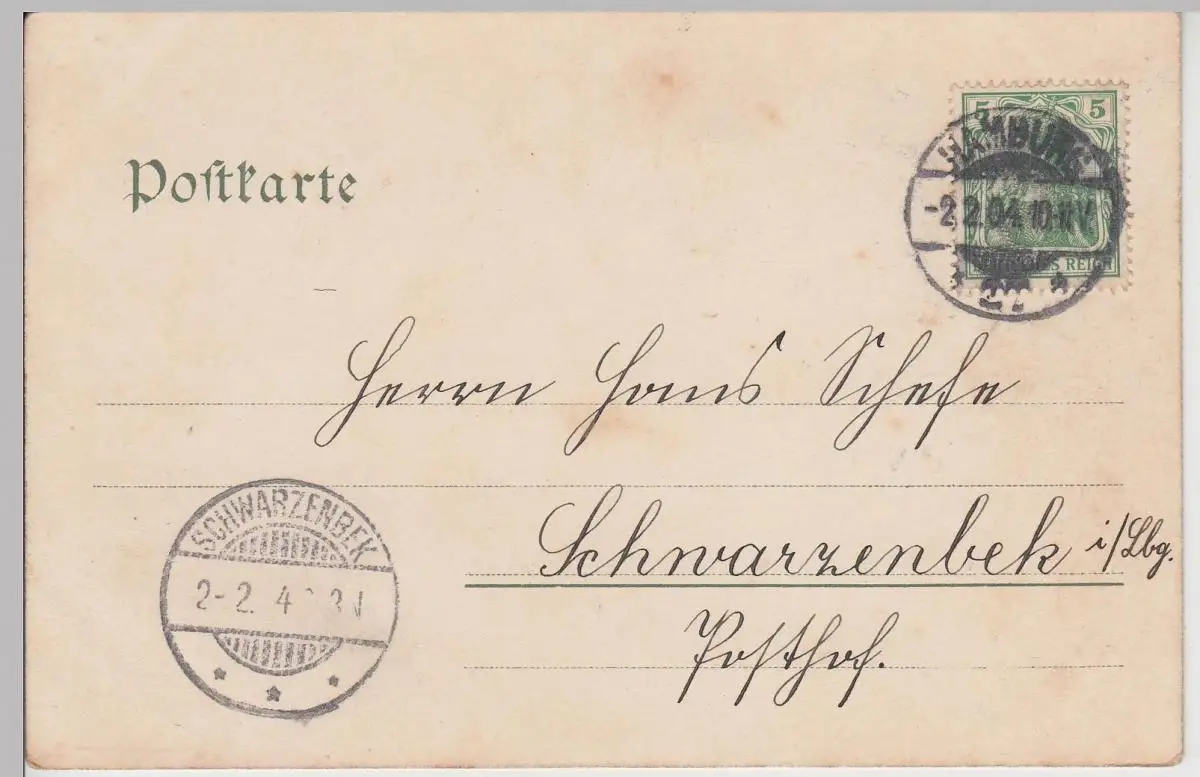 Postkarte
5 5
HAMBURG
-2.2.04. 10-11V.
REICH
Herrn Hans Schefe
SCHWARZENBEK
2-2. 4
Schwarzenbek i/Lbg.
Posthof.